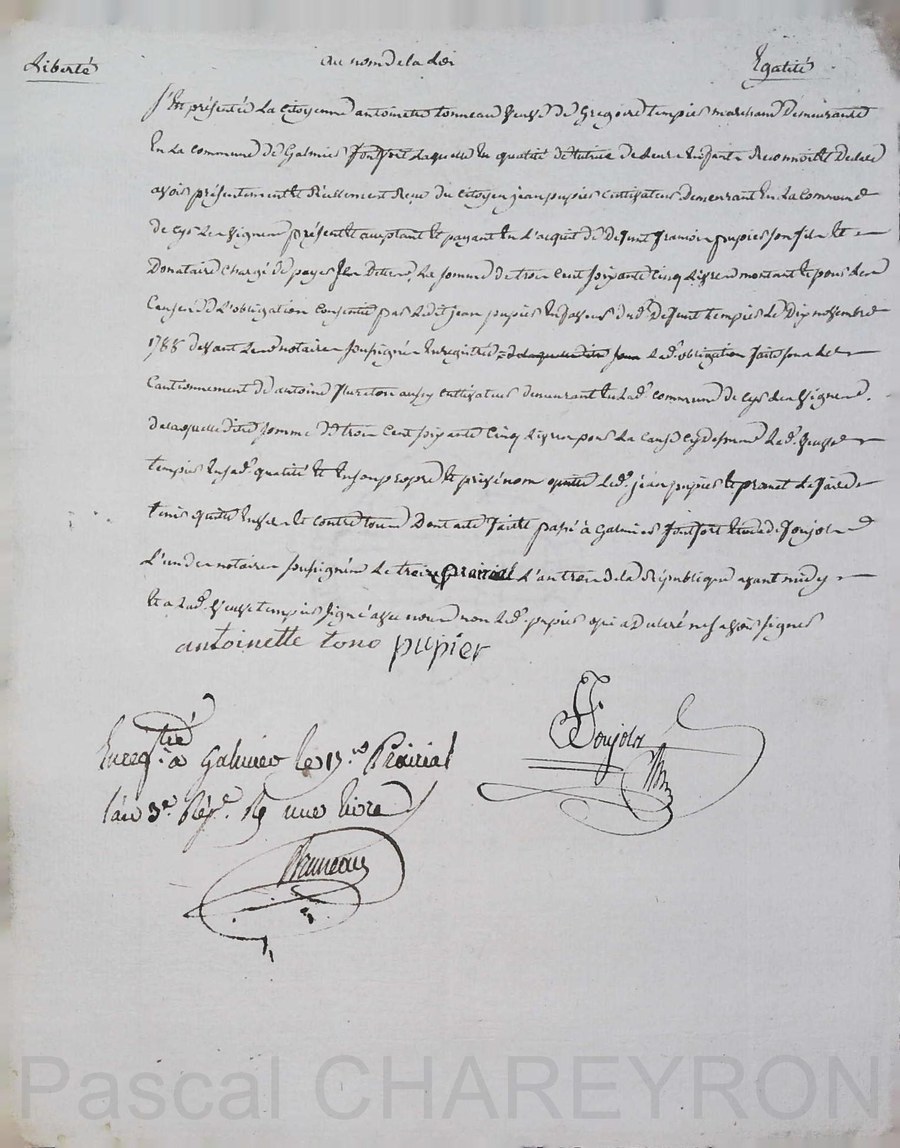 Liberté au nom de la Loi Egalité
S'est présentée La Citoyenne antoinette tonneau Veuve de Gregoire tempier marchand demeurante
En La Commune de Galmier fontfort Laquelle En qualité de tutrice de Leurs Enfants Reconnoit Et declare
avoir présentement Et Réellement Reçu du Citoyen jean pupier Cultivateur demeurant En La Commune
de présent acceptant Et payant En L'acquit de deffunt pupier Son fils Et
Donataire Chargé de payer Ses Dettes La Somme de trois Cent Soixante Cinq Livres montant Et pour Les
Causes de L'obligation Consentie par Ledit jean pupier En faveur dud. Deffunt tempier Le Dix novembre
1788 devant Les notaires Soussignés Enregistrée Lad. obligation faite Sous Le
Cautionnement de antoine aussy Cultivateur demeurant En Lad. Commune de
de laquelle ditte Somme de trois Cent Soixante Cinq Livres pour La Cause Cy dessus Lad. Veuve
tempier En sad. qualité Et En son propre Et privé nom quitte Led. jean pupier Et promet Le faire
tenir quitte Envers Et Contre tous Dont acte fait Et passé à Galmier fontfort Etude de Joujols
L'un des notaires Soussignés Le trois prairial L'an trois de la République avant midy
Et a Lad. Veuve tempier Signé avec nous non Led. pupier qui a declaré ne Savoir Signer
antoinette tono pupier
Joujols
Enregtré à Galmier le Prairial
l'an 3e. Rép. R9 une livre